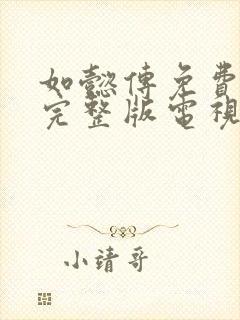 如懿傳免費
完整版電視
小靖哥